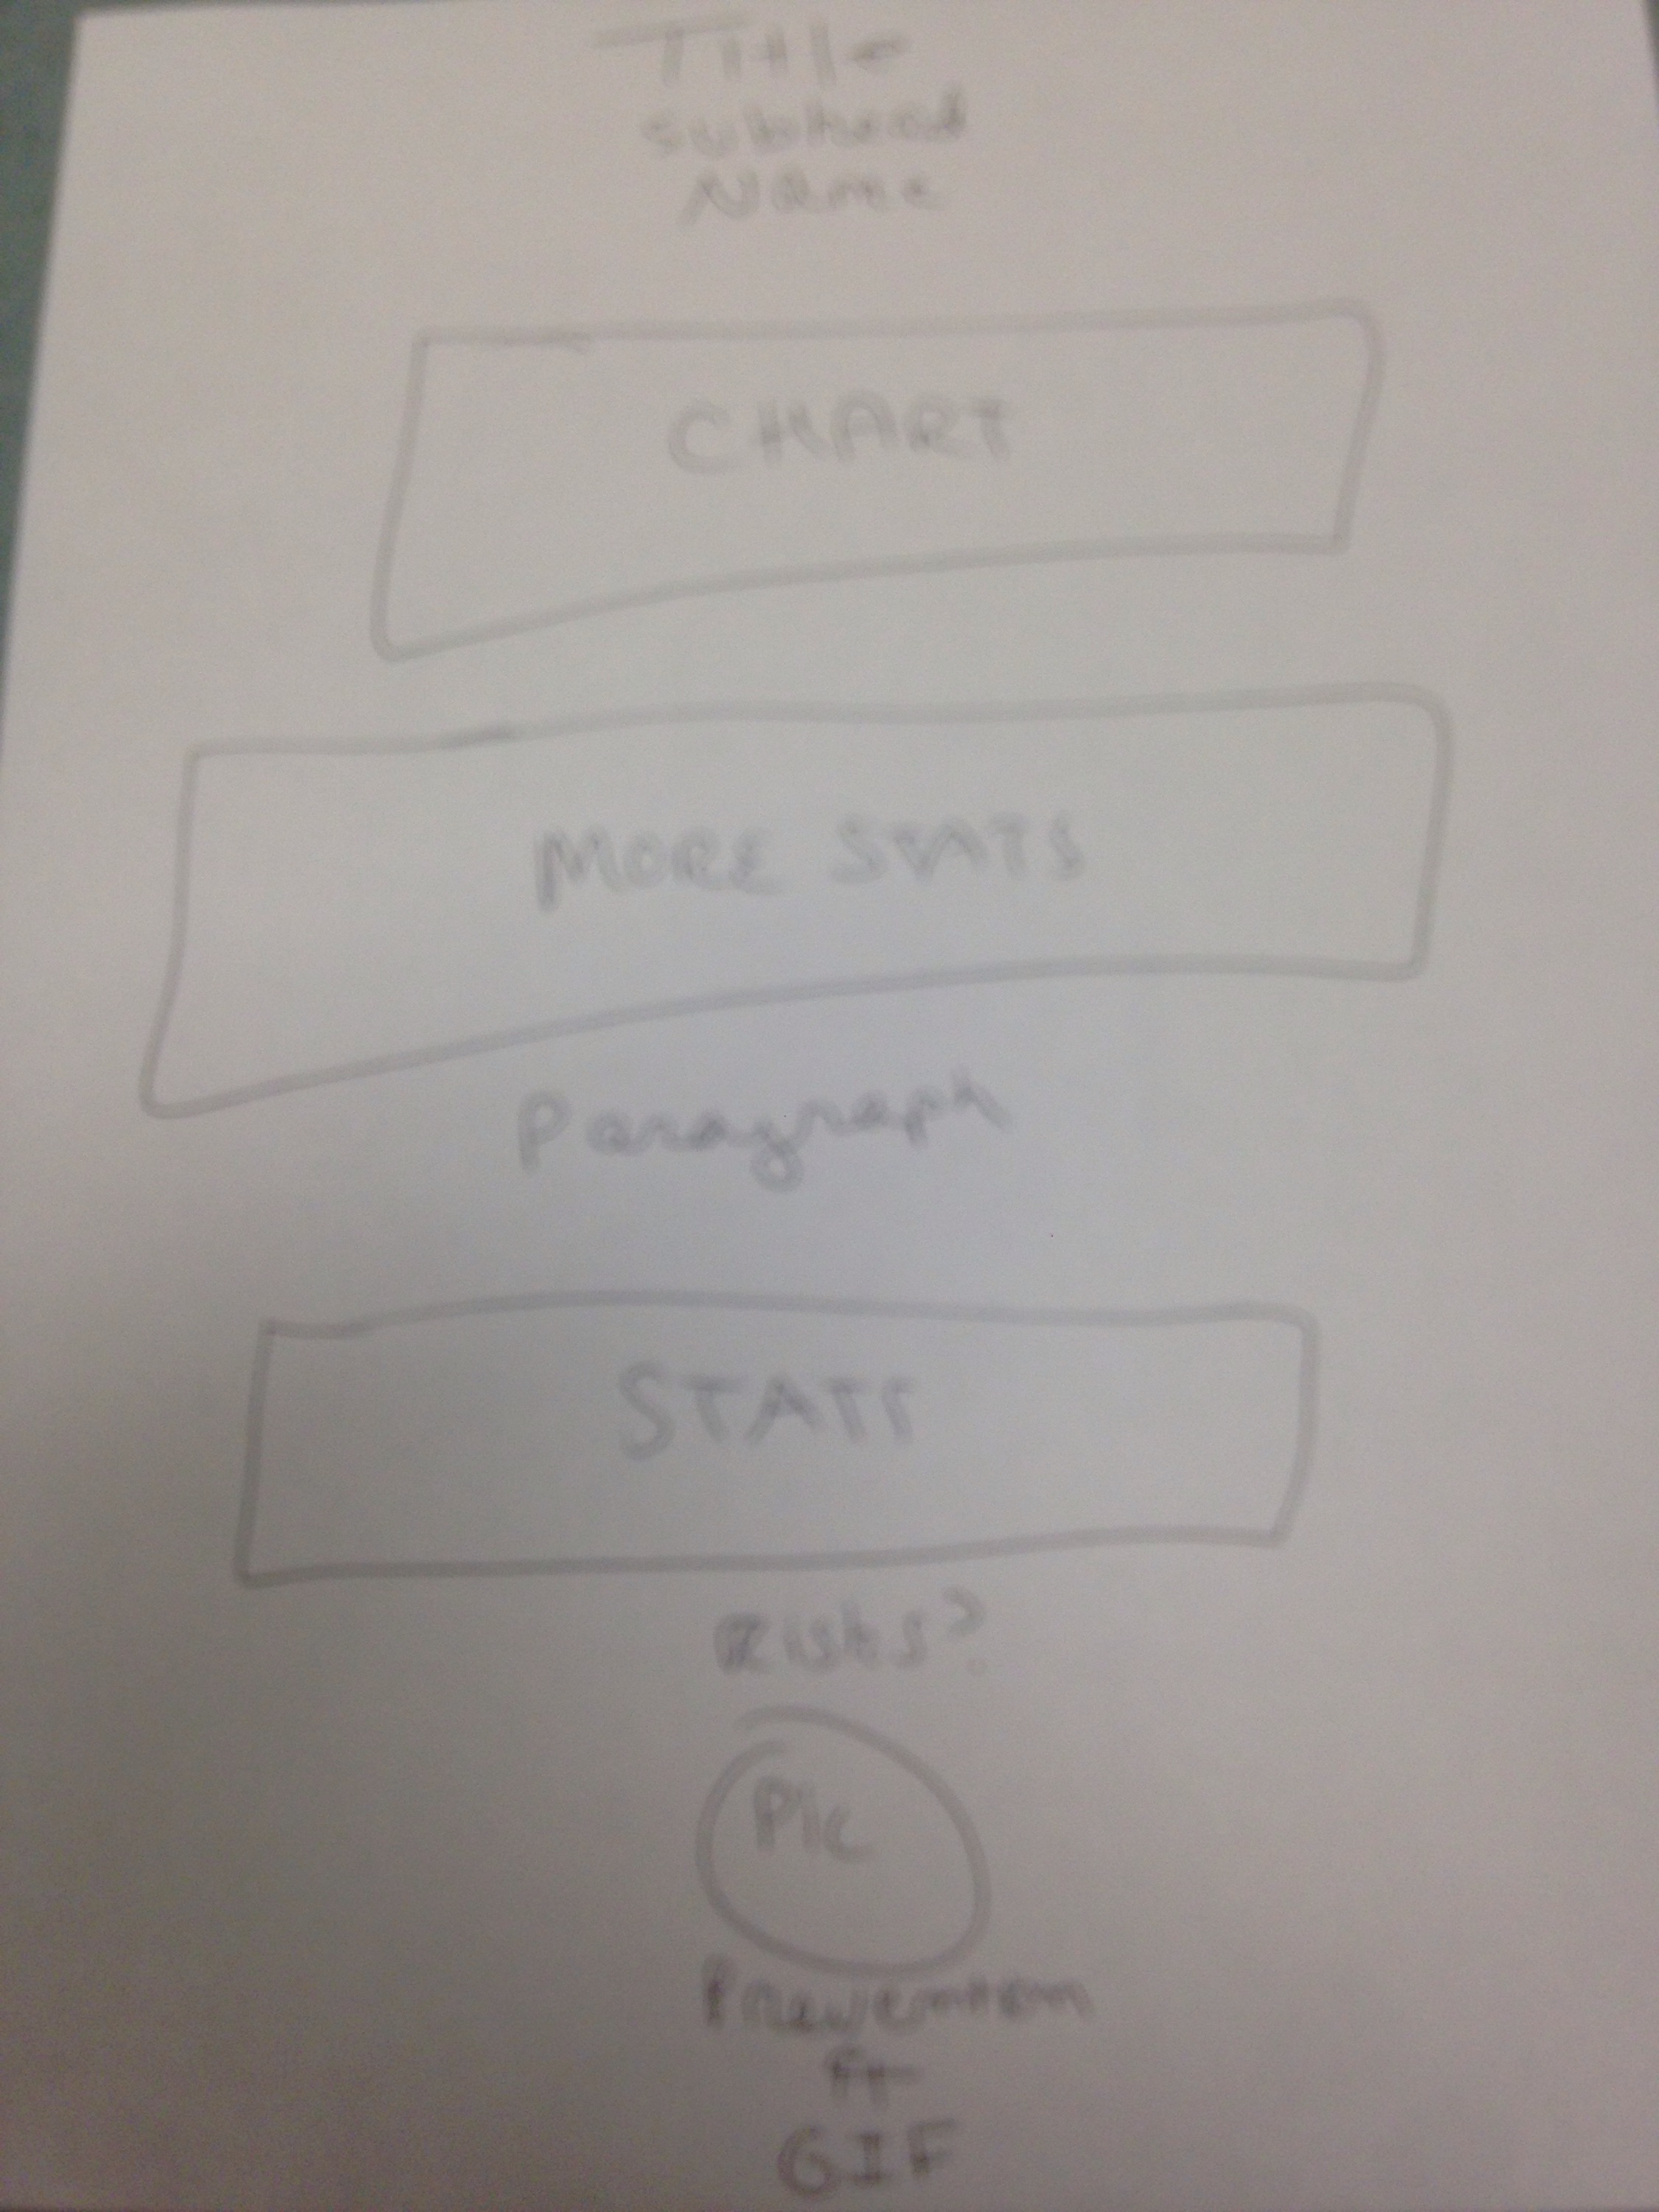 Title
Subhead
Name
CHART
MORE STATS
Paragraph
STATS
Risks?
Pic
Prevention
GIF